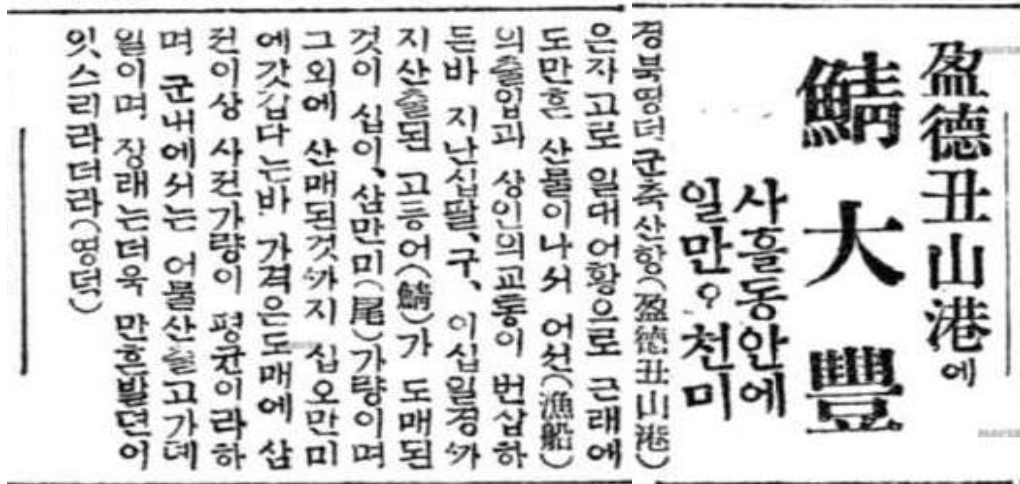 盈德丑山港에
鯖大豐
사흘동안에
일만오천미
경북영덕군축산항(盈德丑山港)
은자고로 일대어황으로 근래에
도만흔 산물이나서 어선(漁船)
의출입과 상인의교통이 번삽하
든바 지난십팔、구、이십일경ᄭᅡ
지산출된 고등어(鯖)가 도매된
것이 십이、삼만미(尾)가량이며
그외에 산매된것ᄭᅡ지 십오만미
에갓갑다는바 가격은도매에 삼
전이상 사전가량이 평균이라하
며 군내에서는 어물산출고가뎨
일이며 장래는더욱 만흔발뎐이
잇스리라더라(영덕)